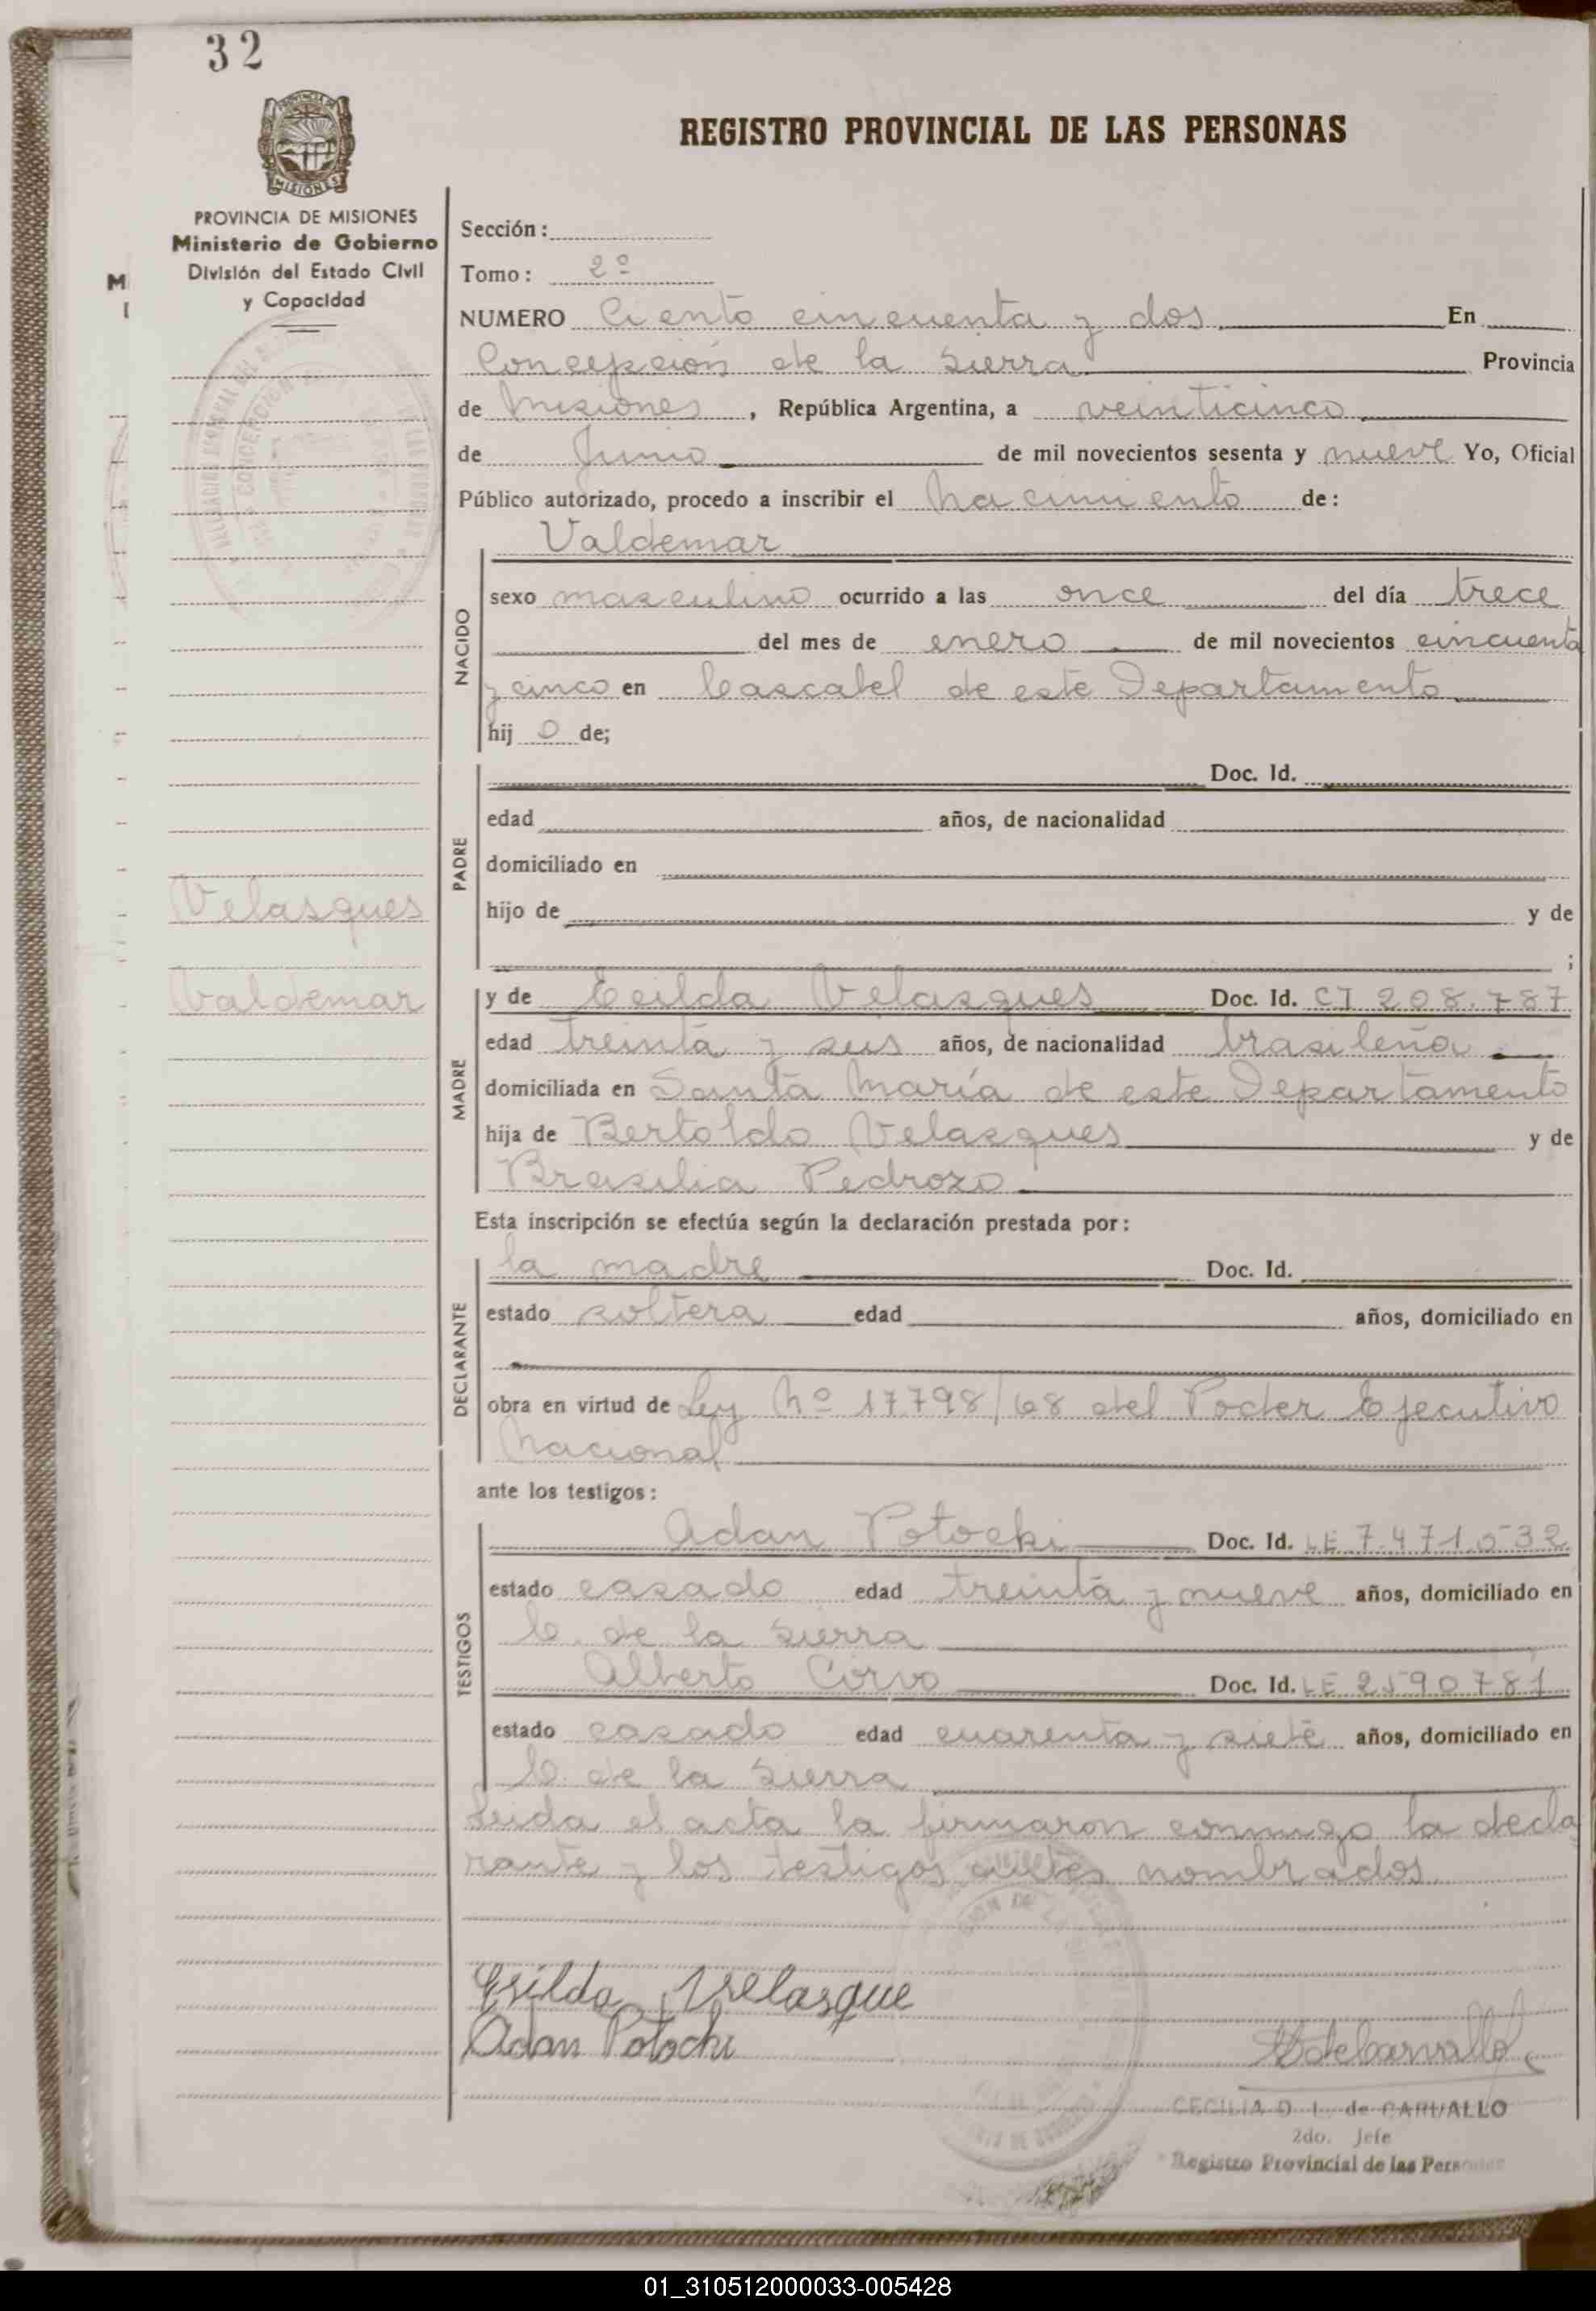 32
PROVINCIA DE MISIONES
Ministerio de Gobierno
División del Estado Civil
y Capacidad
REGISTRO PROVINCIAL DE LAS PERSONAS
Sección:
Tomo: 2º
NUMERO Ciento cincuenta y dos En
Concepción de la Sierra Provincia
de Misiones, República Argentina, a veinticinco
de Junio de mil novecientos sesenta y nueve Yo, Oficial
Público autorizado, procedo a inscribir el nacimiento de:
Valdemar
NACIDO
sexo masculino ocurrido a las once del día trece
del mes de enero de mil novecientos cincuenta
y cinco en Cascatel de este Departamento
hij o de;
PADRE
Doc. Id.
edad años, de nacionalidad
domiciliado en
hijo de y de
;
Velasques
Valdemar
MADRE
y de Ecilda Velasques Doc. Id. CI 208.787
edad treinta y seis años, de nacionalidad brasileña
domiciliada en Santa María de este Departamento
hija de Bertoldo Velasques y de
Brasilia Pedrozo
Esta inscripción se efectúa según la declaración prestada por:
DECLARANTE
la madre Doc. Id.
estado soltera edad años, domiciliado en
obra en virtud de Ley Nº 17.798/68 del Poder Ejecutivo
Nacional
ante los testigos:
TESTIGOS
Adan Potocki Doc. Id. LE 7.471.532
estado casado edad treinta y nueve años, domiciliado en
C. de la Sierra
Alberto Corvo Doc. Id. LE 2590781
estado casado edad cuarenta y siete años, domiciliado en
C. de la Sierra
Leida el acta la firmaron conmigo la decla
rante y los testigos antes nombrados
Esilda Velasque
Adan Potochi
CECILIA D. L. de CARVALLO
2do. Jefe
Registro Provincial de las Personas
01_310512000033-005428